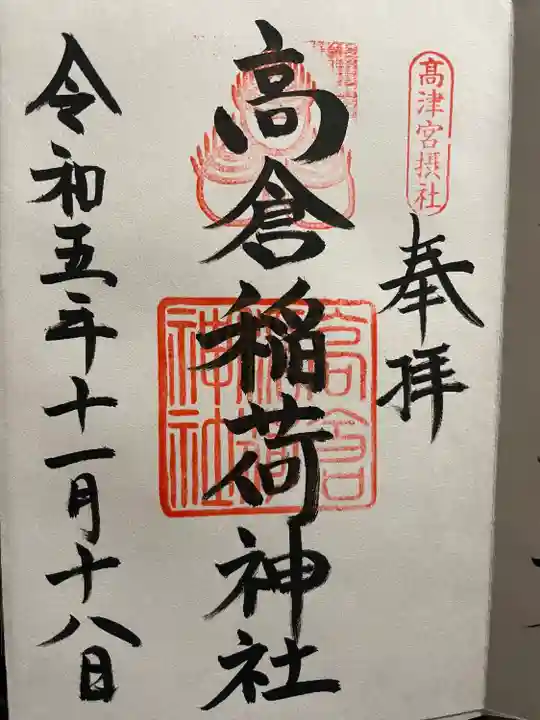 高津宮摂社
奉拝
高倉稲荷神社
高倉
稲荷
神社
令和五年十一月十八日